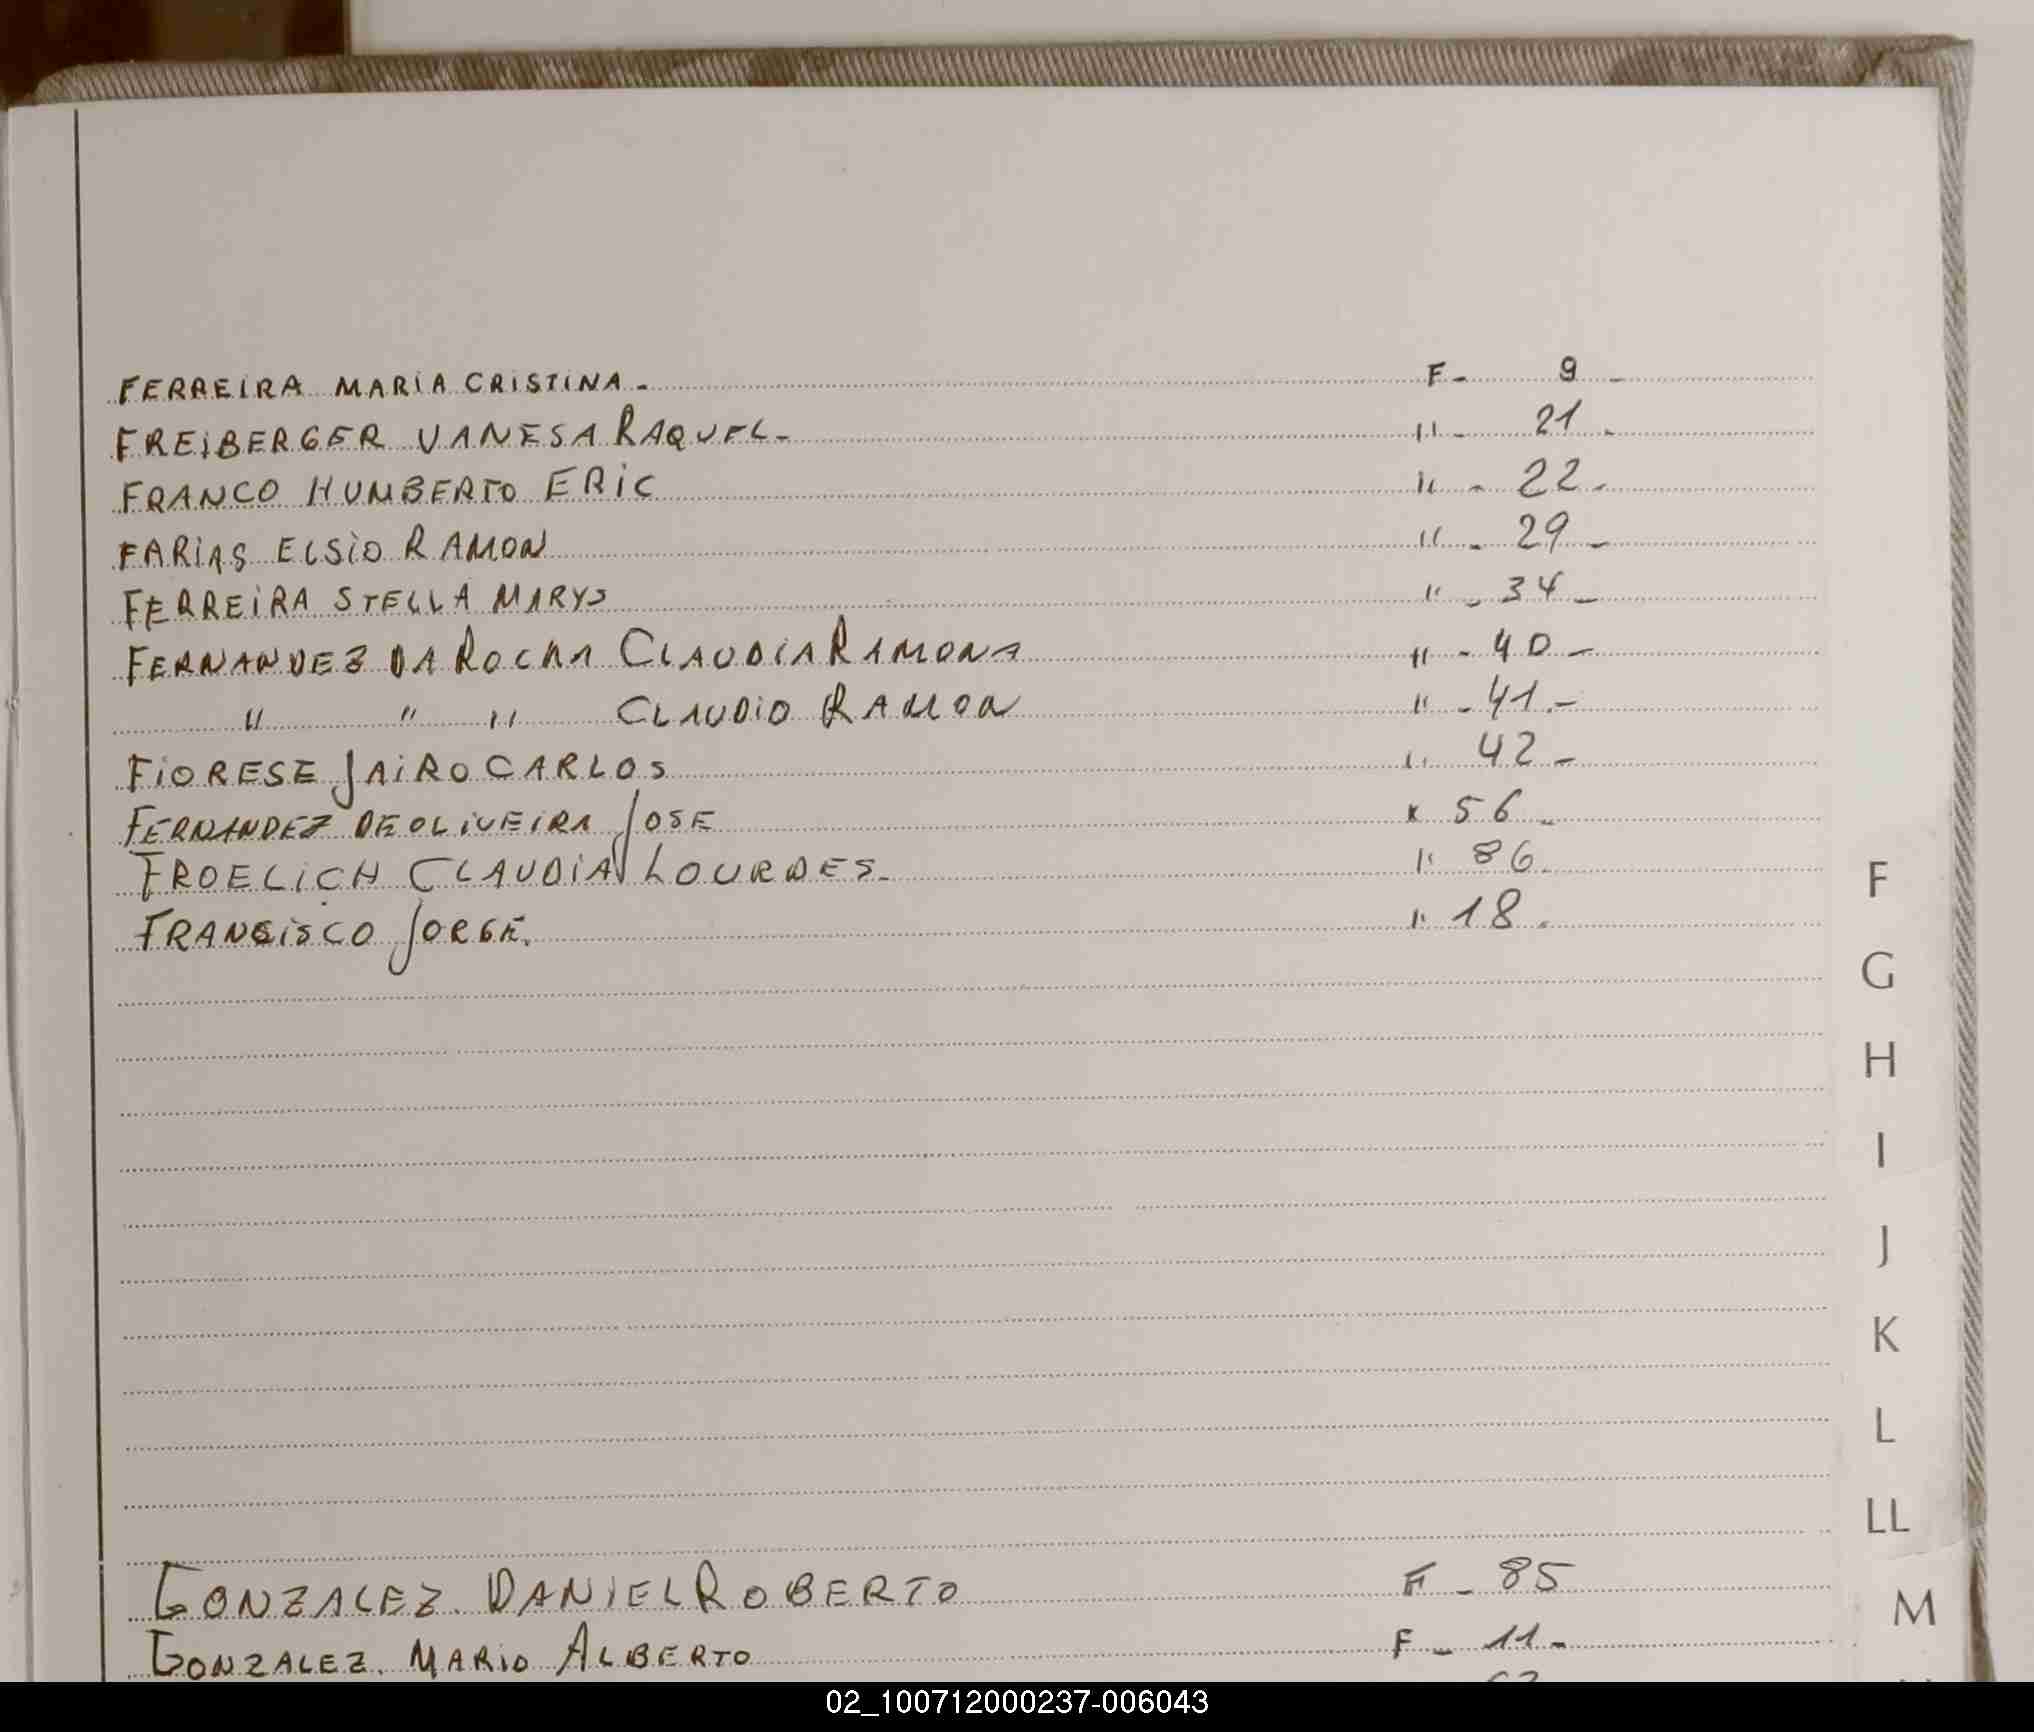 FERREIRA MARIA CRISTINA. F- 9 -
FREIBERGER VANESA RAQUEL- " - 21 -
FRANCO HUMBERTO ERIC " - 22 -
FARIAS ELSIO RAMON " - 29 -
FERREIRA STELLA MARYS " - 34 -
FERNANDEZ DA ROCHA CLAUDIA RAMONA " - 40 -
" " " CLAUDIO RAMON " - 41.-
FIORESE JAIRO CARLOS " 42 -
FERNANDEZ DE OLIVEIRA JOSE " 56 -
FROELICH CLAUDIA LOURDES. " 86.
FRANCISCO JORGE. " 18.
GONZALEZ. DANIEL ROBERTO F - 85
GONZALEZ. MARIO ALBERTO F - 11-
F
G
H
I
J
K
L
LL
M
02_100712000237-006043